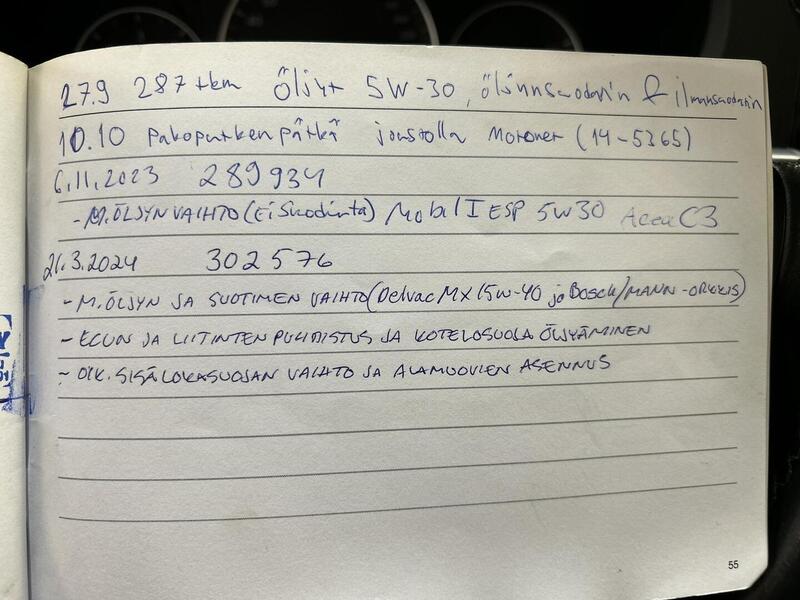 27.9 287 tkm Öljyt 5W-30, öljynsuodatin & ilmansuodatin
10.10 Pakoputkenpätkä joustolla Motonet (14-5365)
6.11.2023 289934
- M.ÖLJYN VAIHTO (Ei Suodinta) Mobil 1 ESP 5W30 Acea C3
21.3.2024 302576
- M. ÖLJYN JA SUOTIMEN VAIHTO (Delvac MX 15W-40 ja Bosch/MANN
- ECUN JA LIITINTEN PUHDISTUS JA ÖLJYÄMINEN
- OIK. SISÄLOKASUOJAN VAIHTO JA ALAMUOVIEN ASENNUS
55